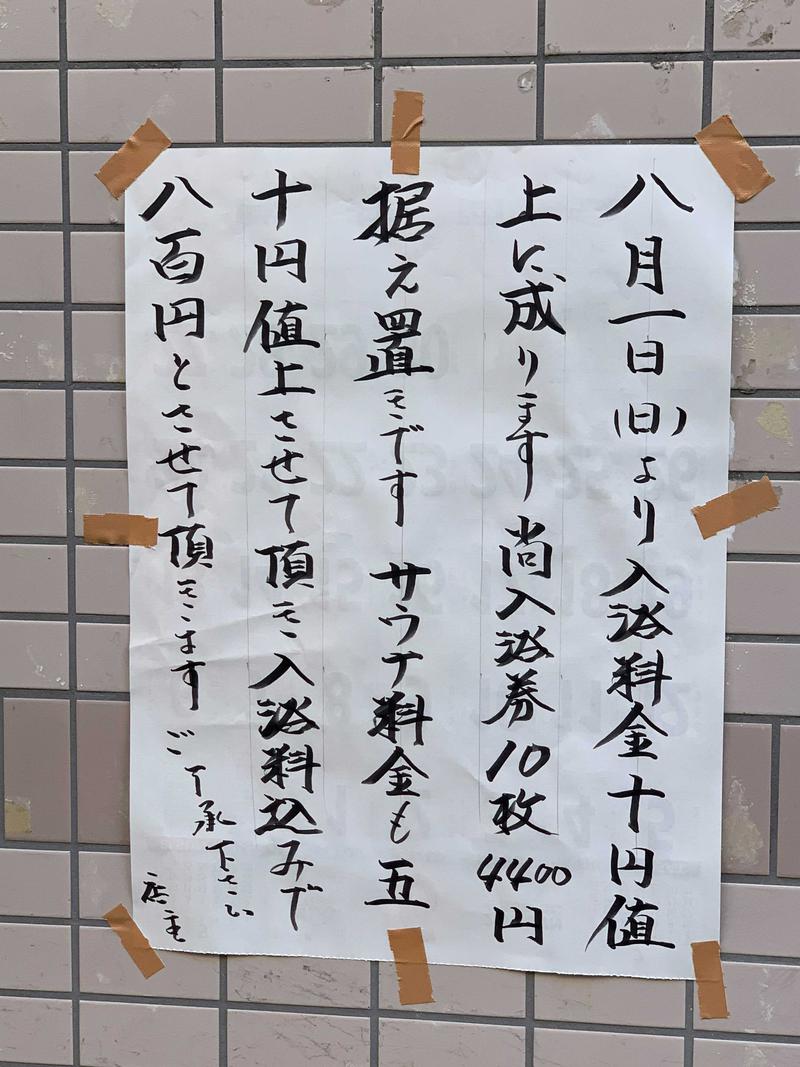 八月一日(日)より入浴料金十円値
上に成ります 尚入浴券10枚 4400円
据え置きです サウナ料金も五
十円値上させて頂き入浴料込みで
八百円とさせて頂きます ご了承下さい
店主